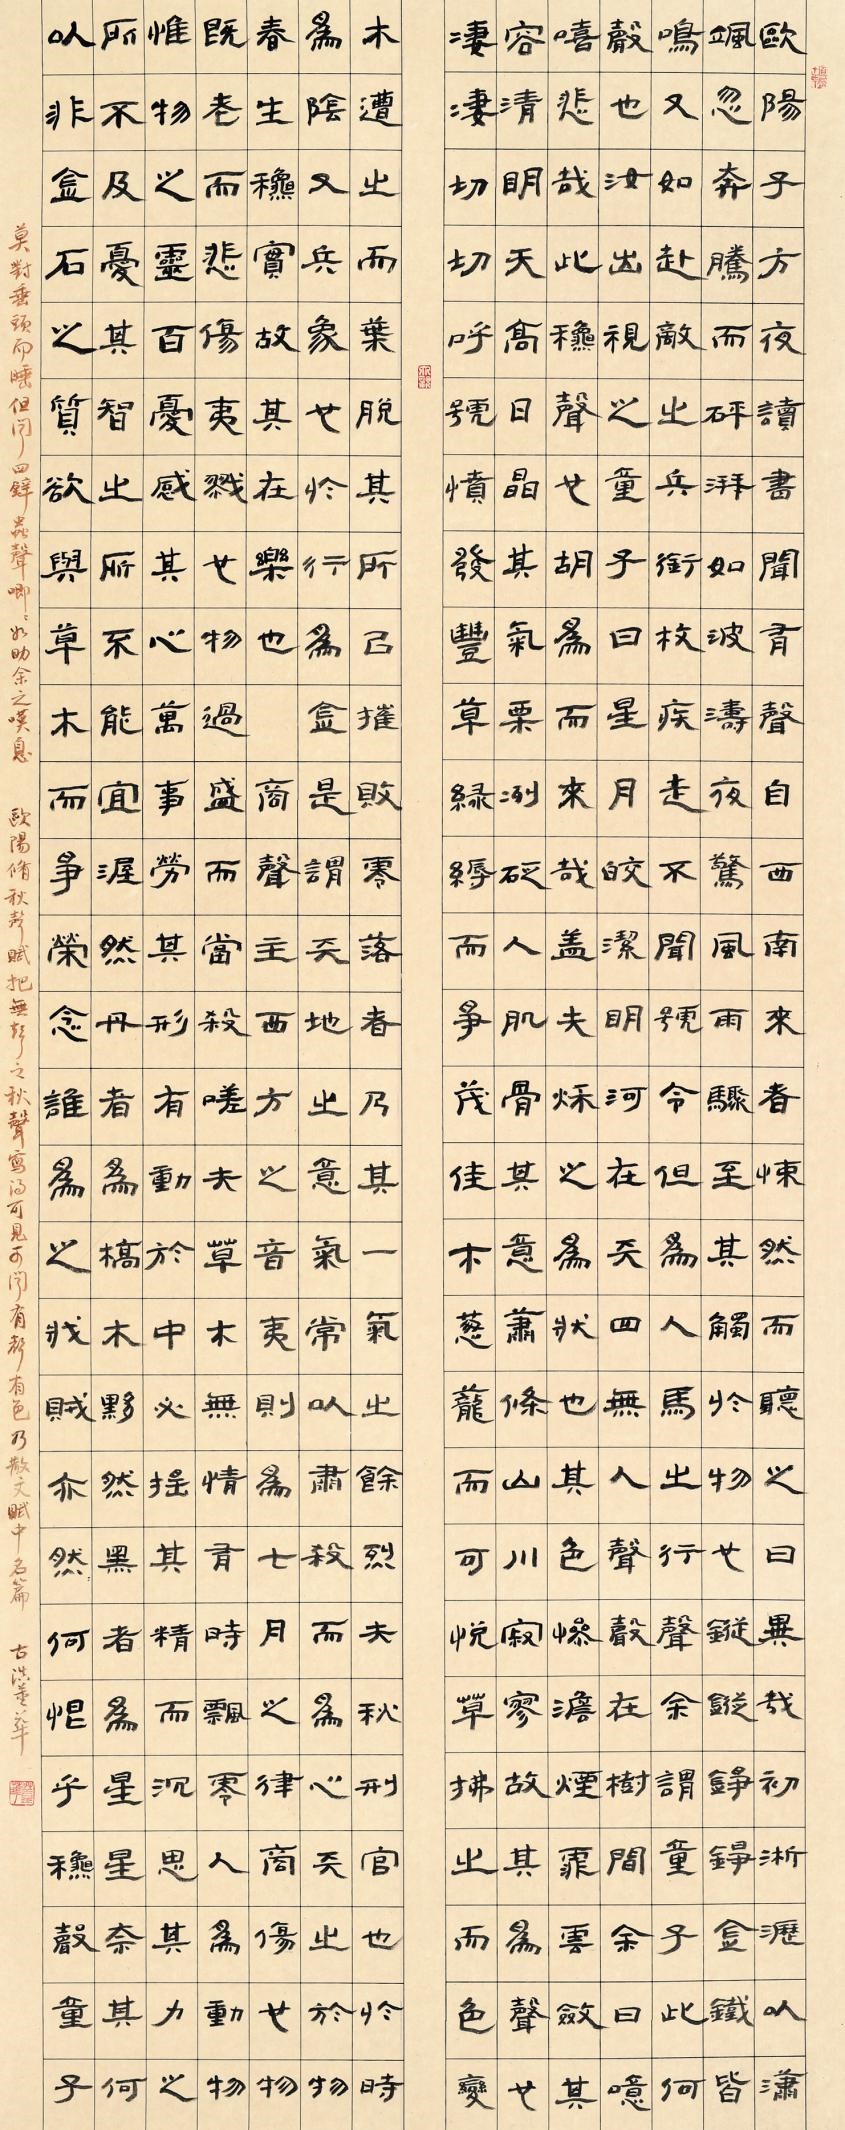 歐陽子方夜讀書聞有聲自西南來者悚然而聽之曰異哉初淅瀝以瀟
颯忽奔騰而砰湃如波濤夜驚風雨驟至其觸於物也鏦鏦錚錚金鐵皆
鳴又如赴敵之兵銜枚疾走不聞號令但爲人馬之行聲余謂童子此何
聲也汝出視之童子曰星月皎潔明河在天四無人聲聲在樹間余曰噫
嘻悲哉此秋聲也胡爲而來哉蓋夫秋之爲狀也其色慘澹煙霏雲斂其
容清明天高日晶其氣栗冽砭人肌骨其意蕭條山川寂寥故其爲聲也
凄凄切切呼號憤發豐草緑縟而爭茂佳木蔥蘢而可悅草拂之而色變
木遭之而葉脫其所已摧敗零落者乃其一氣之餘烈夫秋刑官也於時
爲陰又兵象也於行爲金是謂天地之意氣常以肅殺而爲心天之於物
春生秋實故其在樂也 商聲主西方之音夷則爲七月之律商傷也物
既老而悲傷夷戮也物過盛而當殺嗟夫草木無情有時飄零人爲動物
惟物之靈百憂感其心萬事勞其形有動於中必搖其精而沉思其力之
所不及憂其智之所不能宜渥然丹者爲槁木黟然黑者爲星星奈其何
以非金石之質欲與草木而爭榮念誰爲之戕賊亦然何恨乎秋聲童子
莫對垂頭而睡但聞四壁蟲聲唧唧如助余之嘆息 歐陽脩秋聲賦把無形之秋聲寫得可見可聞有聲有色乃散文賦中名篇